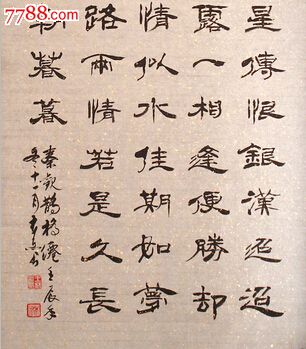 7788.com
星傳恨銀漢迢迢
露一相逢便勝却
情似水佳期如夢
路兩情若是久長
朝暮暮
秦觀鵲橋僊壬辰年
冬十一月